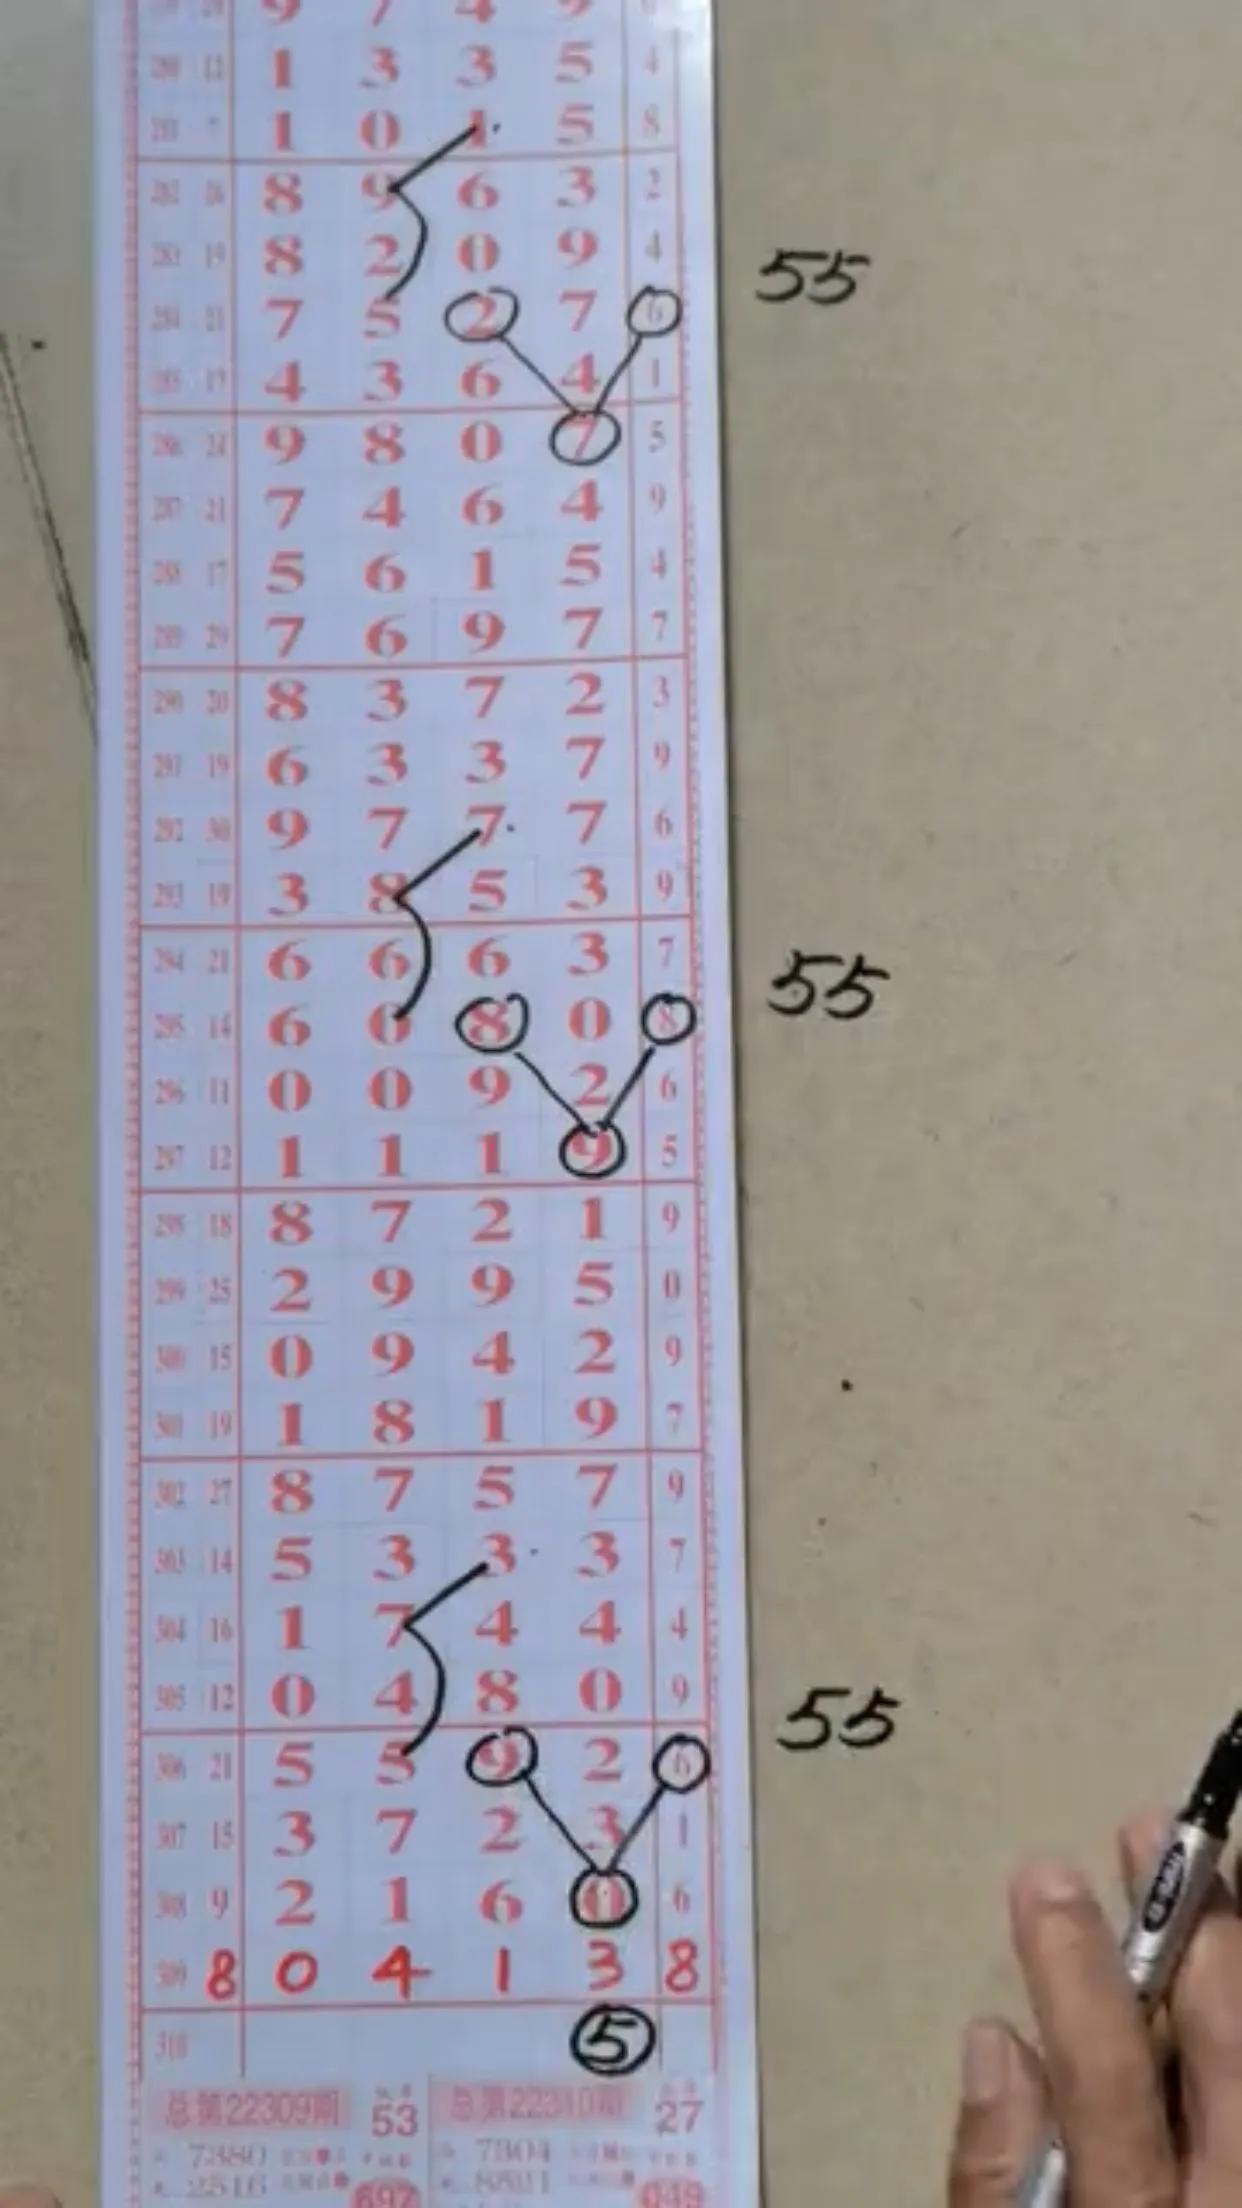 9 7 4 9
280 12 1 3 3 5 4
281 7 1 0 1 5 8
282 26 8 9 6 3 2
283 19 8 2 0 9 4
55
284 21 7 5 2 7 6
285 17 4 3 6 4 1
286 24 9 8 0 7 5
287 21 7 4 6 4 9
288 17 5 6 1 5 4
289 29 7 6 9 7 7
290 20 8 3 7 2 3
291 19 6 3 3 7 9
292 30 9 7 7 7 6
293 19 3 8 5 3 9
294 21 6 6 6 3 7
55
295 14 6 0 8 0 8
296 11 0 0 9 2 6
297 12 1 1 1 9 5
298 18 8 7 2 1 9
299 25 2 9 9 5 0
300 15 0 9 4 2 9
301 19 1 8 1 9 7
302 27 8 7 5 7 9
303 14 5 3 3 3 7
304 16 1 7 4 4 4
305 12 0 4 8 0 9
55
306 21 5 5 9 2 6
307 15 3 7 2 3 1
308 9 2 1 6 0 6
309 8 0 4 1 3 8
310 5
总第22309期 53 总第22310期 27
7380 7304
2516
692 049